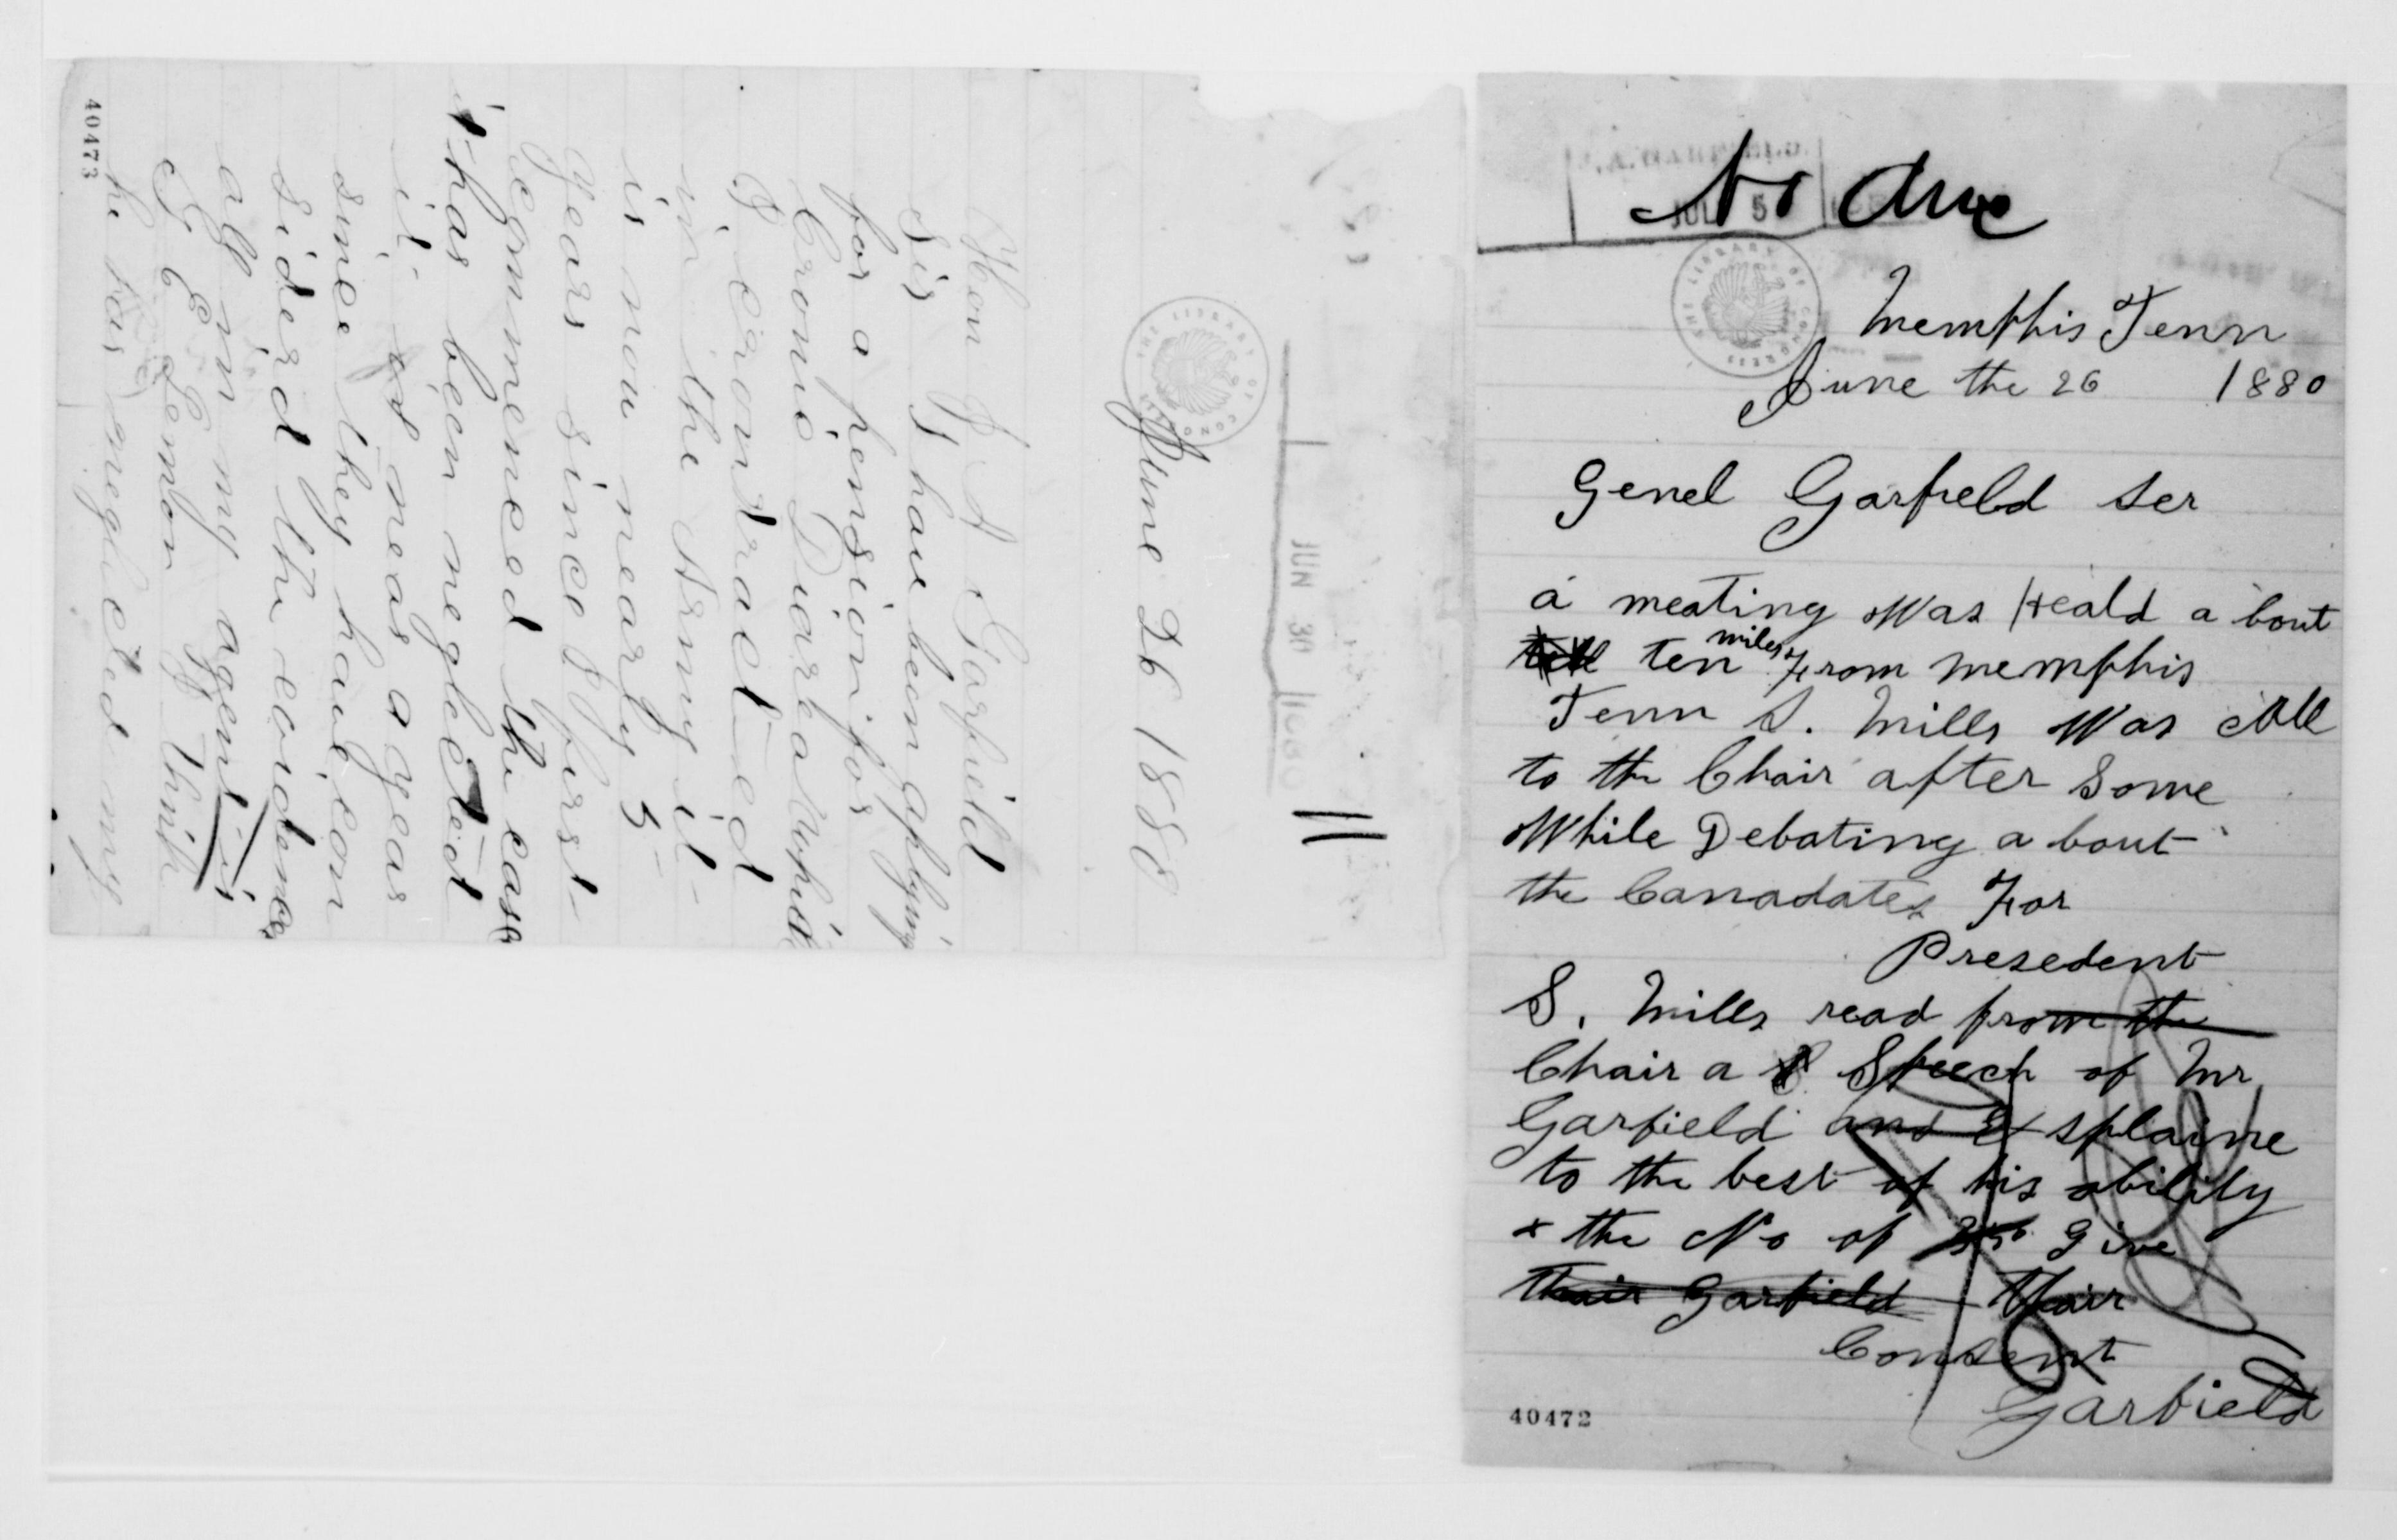 June 26 1880
Hon J A Garfield
Sir I have been applying
for a pension for
Cronic Diarea which
I contracted
in the Army it
is now nearly 5
years since I first
commenced the case
it has been neglected
it is near a year
since they have con
siderd the evidence
all in my agent is
N E Lemon I think
he has neglected my
40473
JUN 30 1880
No Ans
JUL 5
THE LIBRARY OF CONGRESS
Memphis Tenn
June the 26 1880
Genel Garfield Ser
a meating Was Heald a bout
ten miles From memphis
Tenn S. Mills Was Call
to the Chair after Some
While Debating a bout
the Canadates For
Presedent
S. Mills read from the
Chair a Speech of Mr
Garfield and Exsplaine
to the best of his ability
& the No of 350 Give
Their Garfield Thair
Consent
Garfield
40472